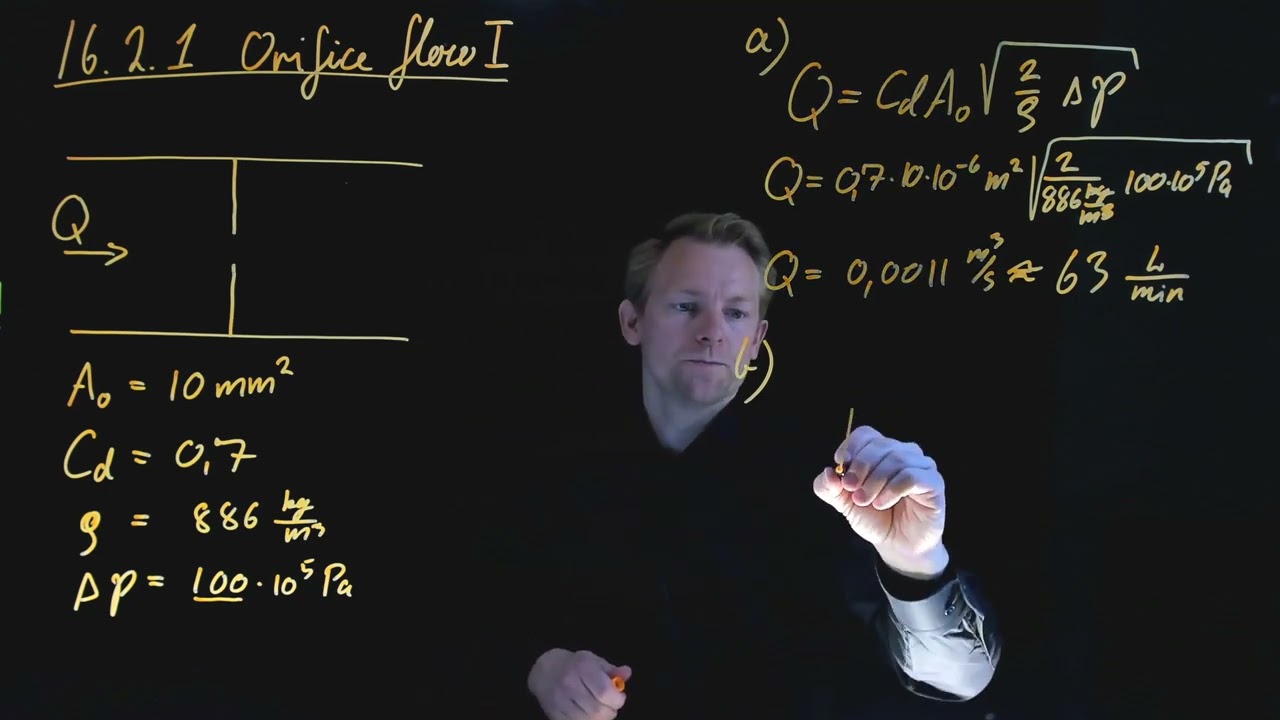 16.2.1 Orifice flow I
Q
A₀ = 10 mm²
Cd = 0,7
ρ = 886 kg/m³
Δp = 100·10⁵ Pa
a)
Q = Cd A₀ √(2/ρ Δp)
Q = 0,7·10·10⁻⁶ m² √(2/(886 kg/m³) 100·10⁵ Pa)
Q = 0,0011 m³/s ≈ 63 L/min
b)